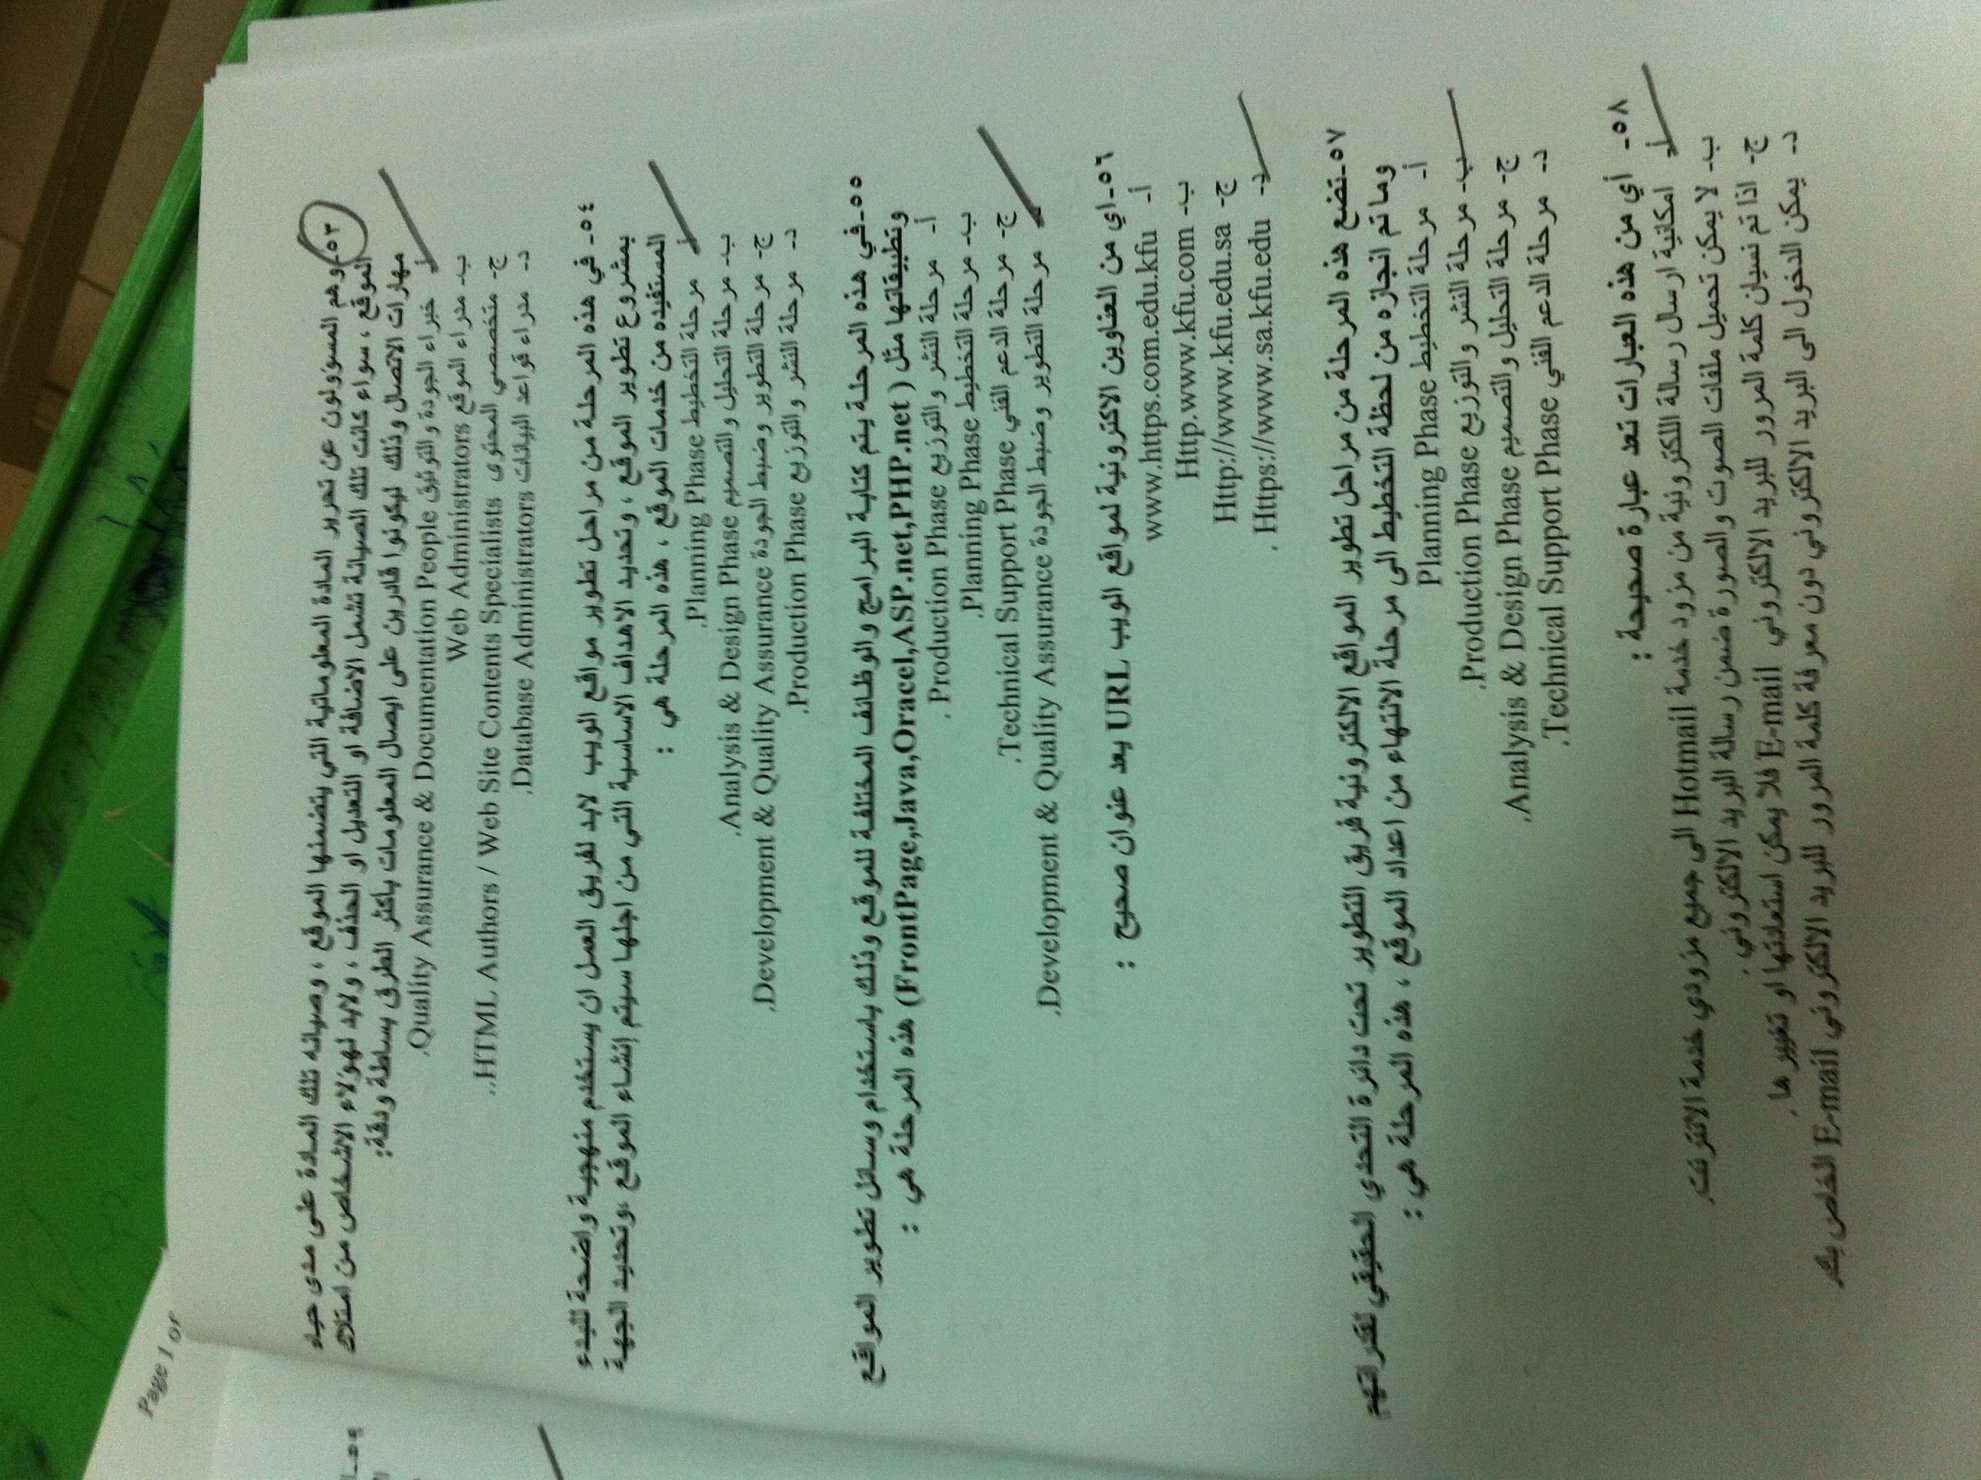 ٥٣- وهم المسؤولون عن تحرير المادة المعلوماتية التي يتضمنها الموقع ، وصيانه تلك المادة على مدى حياه
الموقع ، سواء كانت تلك الصيانة تشمل الاضافة او التعديل او الحذف ، ولابد لهؤلاء الاشخاص من امتلاك
مهارات الاتصال وذلك ليكونوا قادرين على ايصال المعلومات باكثر الطرق بساطة ودقة:
أ- خبراء الجودة و التوثيق Quality Assurance & Documentation People.
ب- مدراء الموقع Web Administrators
ج- متخصصي المحتوى HTML Authors / Web Site Contents Specialists..
د- مدراء قواعد البيانات Database Administrators.
٥٤- في هذه المرحلة من مراحل تطوير مواقع الويب لابد لفريق العمل ان يستخدم منهجية واضحة للبدء
بمشروع تطوير الموقع ، وتحديد الاهداف الاساسية التي من اجلها سيتم إنشاء الموقع ،وتحديد الجهة
المستفيده من خدمات الموقع ، هذه المرحلة هي :
أ- مرحلة التخطيط Planning Phase.
ب- مرحلة التحليل والتصميم Analysis & Design Phase.
ج- مرحلة التطوير وضبط الجودة Development & Quality Assurance.
د- مرحلة النشر و التوزيع Production Phase.
٥٥-في هذه المرحلة يتم كتابة البرامج والوظائف المختلفة للموقع وذلك باستخدام وسائل تطوير المواقع
وتطبيقاتها مثل ( FrontPage,Java,Oracel,ASP.net,PHP.net) هذه المرحلة هي :
أ- مرحلة النشر و التوزيع Production Phase .
ب- مرحلة التخطيط Planning Phase.
ج- مرحلة الدعم الفني Technical Support Phase.
د- مرحلة التطوير وضبط الجودة Development & Quality Assurance.
٥٦-اي من العناوين الاكترونية لمواقع الويب URL يعد عنوان صحيح :
أ- www.https.com.edu.kfu
ب- Http.www.kfu.com
ج- Http://www.kfu.edu.sa
د- Https://www.sa.kfu.edu .
٥٧-تضع هذه المرحلة من مراحل تطوير المواقع الالكترونية فريق التطوير تحت دائرة التحدي الحقيقي لقدراتهم
وما تم انجازه من لحظة التخطيط الى مرحلة الانتهاء من اعداد الموقع ، هذه المرحلة هي :
أ- مرحلة التخطيط Planning Phase
ب- مرحلة النشر و التوزيع Production Phase.
ج- مرحلة التحليل والتصميم Analysis & Design Phase.
د- مرحلة الدعم الفني Technical Support Phase.
٥٨- أي من هذه العبارات تعد عبارة صحيحة :
أ- امكانية ارسال رسالة الكترونية من مزود خدمة Hotmail الى جميع مزودي خدمة الانترنت.
ب- لا يمكن تحميل ملفات الصوت والصورة ضمن رسالة البريد الالكتروني .
ج- اذا تم نسيان كلمة المرور للبريد الالكتروني E-mail فلا يمكن استعادتها او تغييرها .
د- يمكن الدخول الى البريد الالكتروني دون معرفة كلمة المرور للبريد الالكتروني E-mail الخاص بك.
Page 1 of